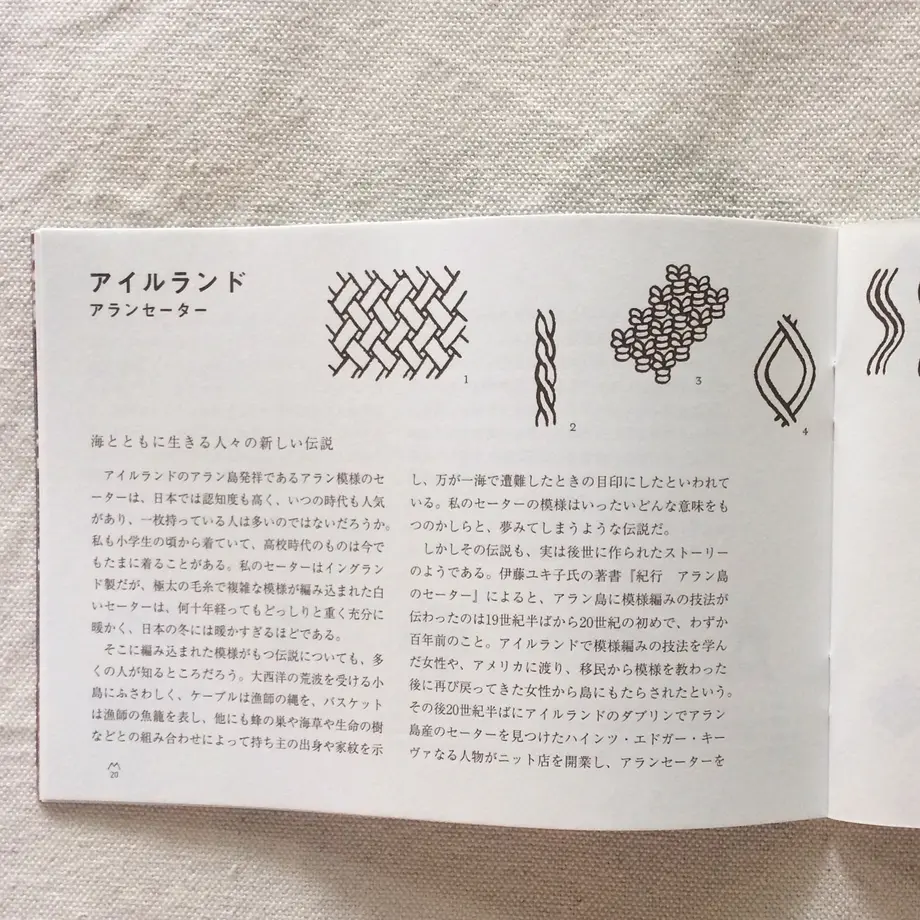 アイルランド
アランセーター
1
2
3
4
海とともに生きる人々の新しい伝説
アイルランドのアラン島発祥であるアラン模様のセ
ーターは、日本では認知度も高く、いつの時代も人気
があり、一枚持っている人は多いのではないだろうか。
私も小学生の頃から着ていて、高校時代のものは今で
もたまに着ることがある。私のセーターはイングラン
ド製だが、極太の毛糸で複雑な模様が編み込まれた白
いセーターは、何十年経ってもどっしりと重く充分に
暖かく、日本の冬には暖かすぎるほどである。
そこに編み込まれた模様がもつ伝説についても、多
くの人が知るところだろう。大西洋の荒波を受ける小
島にふさわしく、ケーブルは漁師の縄を、バスケット
は漁師の魚籠を表し、他にも蜂の巣や海草や生命の樹
などとの組み合わせによって持ち主の出身や家紋を示
し、万が一海で遭難したときの目印にしたといわれて
いる。私のセーターの模様はいったいどんな意味をも
つのかしらと、夢みてしまうような伝説だ。
しかしその伝説も、実は後世に作られたストーリー
のようである。伊藤ユキ子氏の著書『紀行　アラン島
のセーター』によると、アラン島に模様編みの技法が
伝わったのは19世紀半ばから20世紀の初めで、わずか
百年前のこと。アイルランドで模様編みの技法を学ん
だ女性や、アメリカに渡り、移民から模様を教わった
後に再び戻ってきた女性から島にもたらされたという。
その後20世紀半ばにアイルランドのダブリンでアラン
島産のセーターを見つけたハインツ・エドガー・キー
ヴァなる人物がニット店を開業し、アランセーターを
20